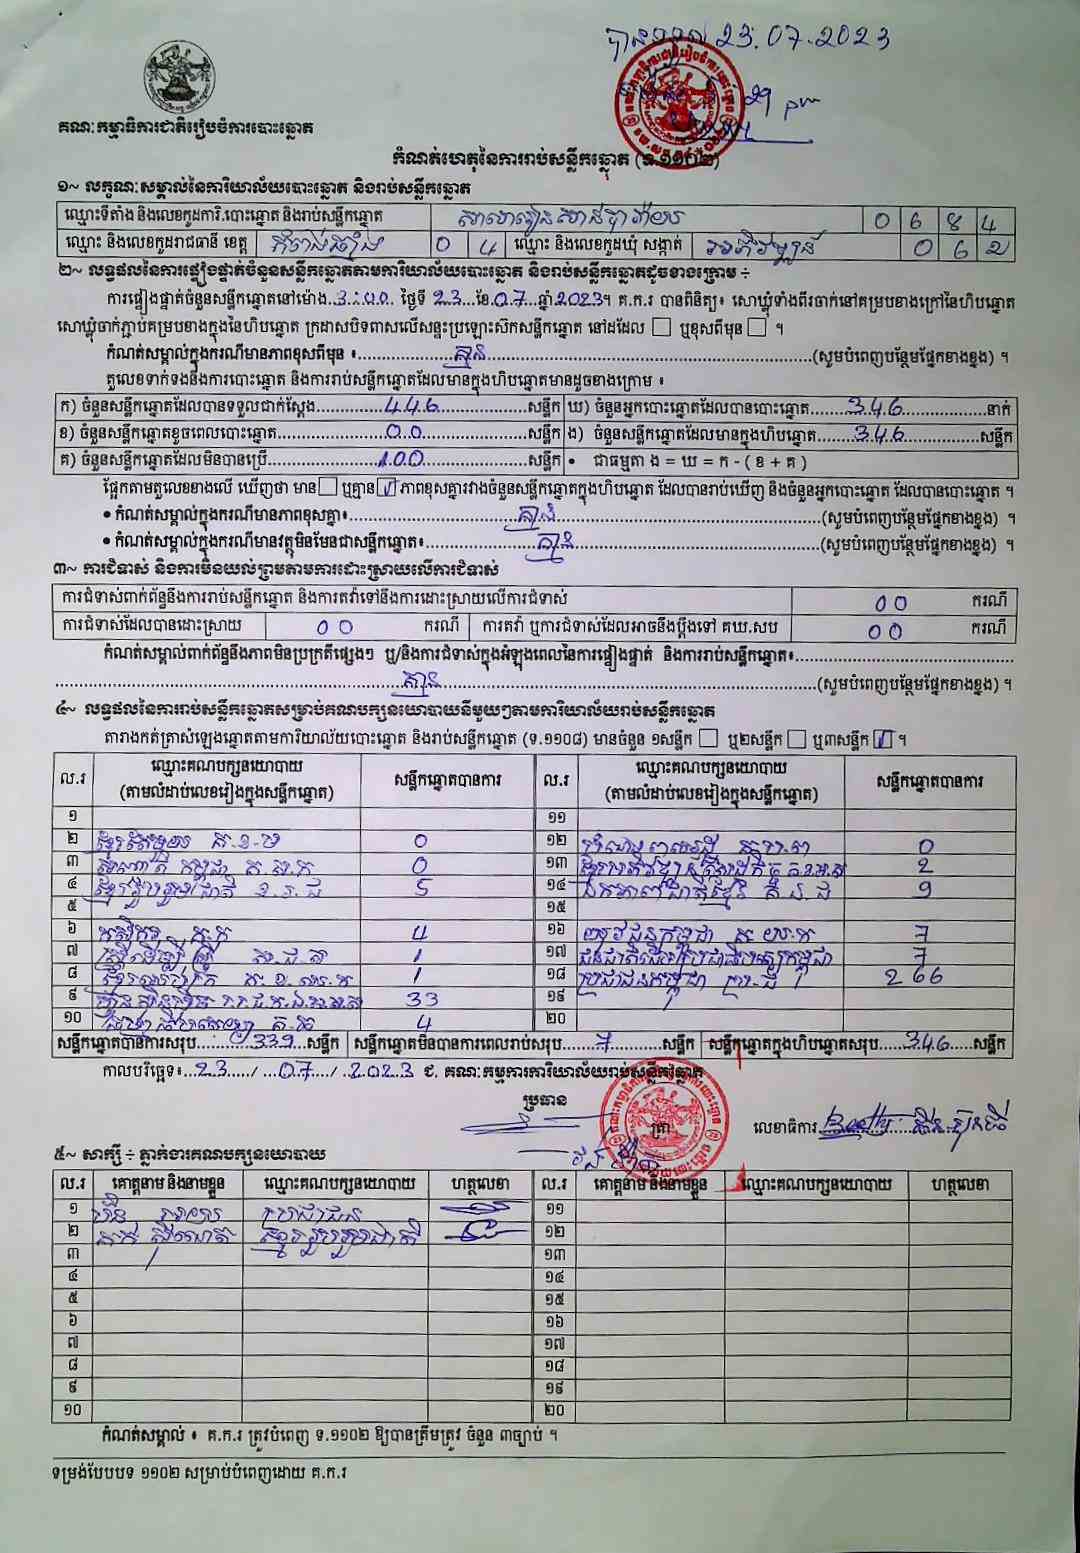 23.07.2023
គណៈកម្មាធិការជាតិរៀបចំការបោះឆ្នោត
កំណត់ហេតុនៃការរាប់សន្លឹកឆ្នោត (ទ.១១០២)
១~ លក្ខណៈសម្គាល់នៃការិយាល័យបោះឆ្នោត និងរាប់សន្លឹកឆ្នោត
ឈ្មោះទីតាំង និងលេខកូដការិ.បោះឆ្នោត និងរាប់សន្លឹកឆ្នោត 0 6 8 4
ឈ្មោះ និងលេខកូដរាជធានី ខេត្ត កំពង់ឆ្នាំង 0 4 ឈ្មោះ និងលេខកូដឃុំ សង្កាត់ 0 6 2
២~ លទ្ធផលនៃការផ្ទៀងផ្ទាត់ចំនួនសន្លឹកឆ្នោតតាមការិយាល័យបោះឆ្នោត និងរាប់សន្លឹកឆ្នោតដូចខាងក្រោម ÷
ការផ្ទៀងផ្ទាត់ចំនួនសន្លឹកឆ្នោតនៅម៉ោង 3:40 ថ្ងៃទី 23 ខែ 07 ឆ្នាំ 2023។ គ.ក.រ បានពិនិត្យ៖ សោឃ្លុំទាំងពីរចាក់នៅគម្របខាងក្រៅនៃហិបឆ្នោត
សោឃ្លុំចាក់ភ្ជាប់គម្របខាងក្នុងនៃហិបឆ្នោត ក្រដាសបិទពាសលើសន្ទះប្រឡោះស៊កសន្លឹកឆ្នោត នៅដដែល ☐ ឬខុសពីមុន ☐ ។
កំណត់សម្គាល់ក្នុងករណីមានភាពខុសពីមុន ៖ គ្មាន (សូមបំពេញបន្ថែមផ្នែកខាងខ្នង) ។
តួលេខទាក់ទងនឹងការបោះឆ្នោត និងការរាប់សន្លឹកឆ្នោតដែលមានក្នុងហិបឆ្នោតមានដូចខាងក្រោម ៖
ក) ចំនួនសន្លឹកឆ្នោតដែលបានទទួលជាក់ស្តែង 446 សន្លឹក ឃ) ចំនួនអ្នកបោះឆ្នោតដែលបានបោះឆ្នោត 346 នាក់
ខ) ចំនួនសន្លឹកឆ្នោតខូចពេលបោះឆ្នោត 00 សន្លឹក ង) ចំនួនសន្លឹកឆ្នោតដែលមានក្នុងហិបឆ្នោត 346 សន្លឹក
គ) ចំនួនសន្លឹកឆ្នោតដែលមិនបានប្រើ 100 សន្លឹក • ជាធម្មតា ង = ឃ = ក - ( ខ + គ )
ផ្អែកតាមតួលេខខាងលើ ឃើញថា មាន ☐ ឬគ្មាន ☑ ភាពខុសគ្នារវាងចំនួនសន្លឹកឆ្នោតក្នុងហិបឆ្នោត ដែលបានរាប់ឃើញ និងចំនួនអ្នកបោះឆ្នោត ដែលបានបោះឆ្នោត ។
• កំណត់សម្គាល់ក្នុងករណីមានភាពខុសគ្នា៖ គ្មាន (សូមបំពេញបន្ថែមផ្នែកខាងខ្នង) ។
• កំណត់សម្គាល់ក្នុងករណីមានវត្ថុមិនមែនជាសន្លឹកឆ្នោត៖ គ្មាន (សូមបំពេញបន្ថែមផ្នែកខាងខ្នង) ។
៣~ ការជំទាស់ និងការមិនយល់ព្រមតាមការដោះស្រាយលើការជំទាស់
ការជំទាស់ពាក់ព័ន្ធនឹងការរាប់សន្លឹកឆ្នោត និងការតវ៉ាទៅនឹងការដោះស្រាយលើការជំទាស់ 00 ករណី
ការជំទាស់ដែលបានដោះស្រាយ 00 ករណី ការតវ៉ា ឬការជំទាស់ដែលអាចនឹងប្តឹងទៅ គឃ.សប 00 ករណី
កំណត់សម្គាល់ពាក់ព័ន្ធនឹងភាពមិនប្រក្រតីផ្សេងៗ ឬ/និងការជំទាស់ក្នុងអំឡុងពេលនៃការផ្ទៀងផ្ទាត់ និងការរាប់សន្លឹកឆ្នោត៖
គ្មាន (សូមបំពេញបន្ថែមផ្នែកខាងខ្នង) ។
៤~ លទ្ធផលនៃការរាប់សន្លឹកឆ្នោតសម្រាប់គណបក្សនយោបាយនីមួយៗតាមការិយាល័យរាប់សន្លឹកឆ្នោត
តារាងកត់ត្រាសំឡេងឆ្នោតតាមការិយាល័យបោះឆ្នោត និងរាប់សន្លឹកឆ្នោត (ទ.១១០៨) មានចំនួន ១សន្លឹក ☐ ឬ២សន្លឹក ☐ ឬ៣សន្លឹក ☑ ។
ល.រ ឈ្មោះគណបក្សនយោបាយ (តាមលំដាប់លេខរៀងក្នុងសន្លឹកឆ្នោត) សន្លឹកឆ្នោតបានការ ល.រ ឈ្មោះគណបក្សនយោបាយ (តាមលំដាប់លេខរៀងក្នុងសន្លឹកឆ្នោត) សន្លឹកឆ្នោតបានការ
១ ១១
២ 0 ១២ 0
៣ 0 ១៣ 2
៤ ខ្មែររួបរួមជាតិ 5 ១៤ 9
៥ ១៥
៦ កសិករ 4 ១៦ យុវជនកម្ពុជា 7
៧ 1 ១៧ 7
៨ 1 ១៨ ប្រជាជនកម្ពុជា 266
៩ 33 ១៩
១០ 4 ២០
សន្លឹកឆ្នោតបានការសរុប 339 សន្លឹក សន្លឹកឆ្នោតមិនបានការពេលរាប់សរុប 7 សន្លឹក សន្លឹកឆ្នោតក្នុងហិបឆ្នោតសរុប 346 សន្លឹក
កាលបរិច្ឆេទ៖ 23 / 07 / 2023 ជ. គណៈកម្មការការិយាល័យរាប់សន្លឹកឆ្នោត
ប្រធាន
ត្រា លេខាធិការ
៥~ សាក្សី ÷ ភ្នាក់ងារគណបក្សនយោបាយ
ល.រ គោត្តនាម និងនាមខ្លួន ឈ្មោះគណបក្សនយោបាយ ហត្ថលេខា ល.រ គោត្តនាម និងនាមខ្លួន ឈ្មោះគណបក្សនយោបាយ ហត្ថលេខា
១ ប្រជាជន ១១
២ ខ្មែររួបរួមជាតិ ១២
៣ ១៣
៤ ១៤
៥ ១៥
៦ ១៦
៧ ១៧
៨ ១៨
៩ ១៩
១០ ២០
កំណត់សម្គាល់ ៖ គ.ក.រ ត្រូវបំពេញ ទ.១១០២ ឱ្យបានត្រឹមត្រូវ ចំនួន ៣ច្បាប់ ។
ទម្រង់បែបបទ ១១០២ សម្រាប់បំពេញដោយ គ.ក.រ